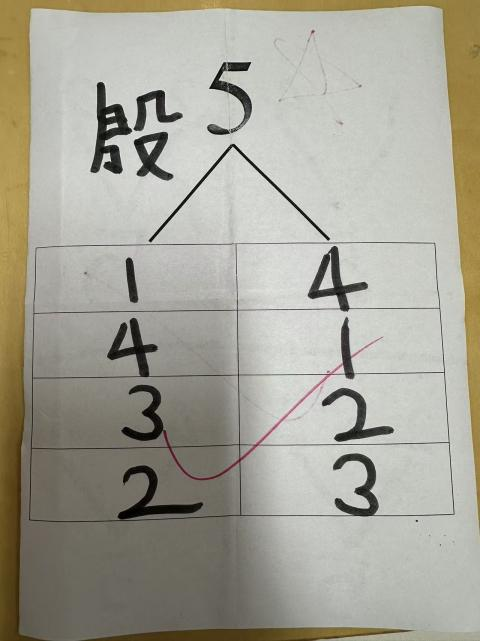 殷 5
1 4
4 1
3 2
2 3